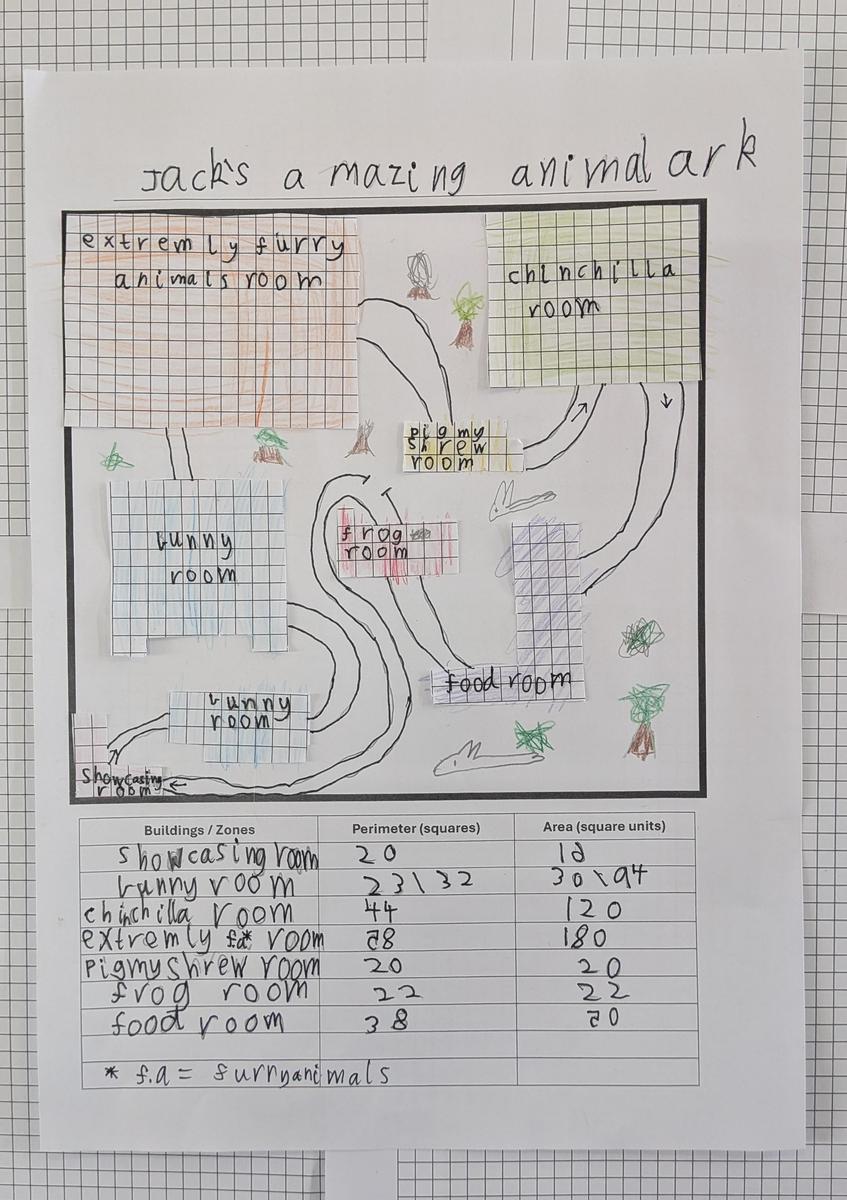 Jack's amazing animal ark
extremly furry
animals room
chinchilla
room
pigmy
shrew
room
frog
room
bunny
room
food room
bunny
room
showcasing
room
Buildings / Zones Perimeter (squares) Area (square units)
showcasing room 20
bunny room 23\32 30\94
chinchilla room 44 120
extremly f.a* room 58 180
pigmy shrew room 20 20
frog room 22 22
food room 38 50
* f.a = furry animals